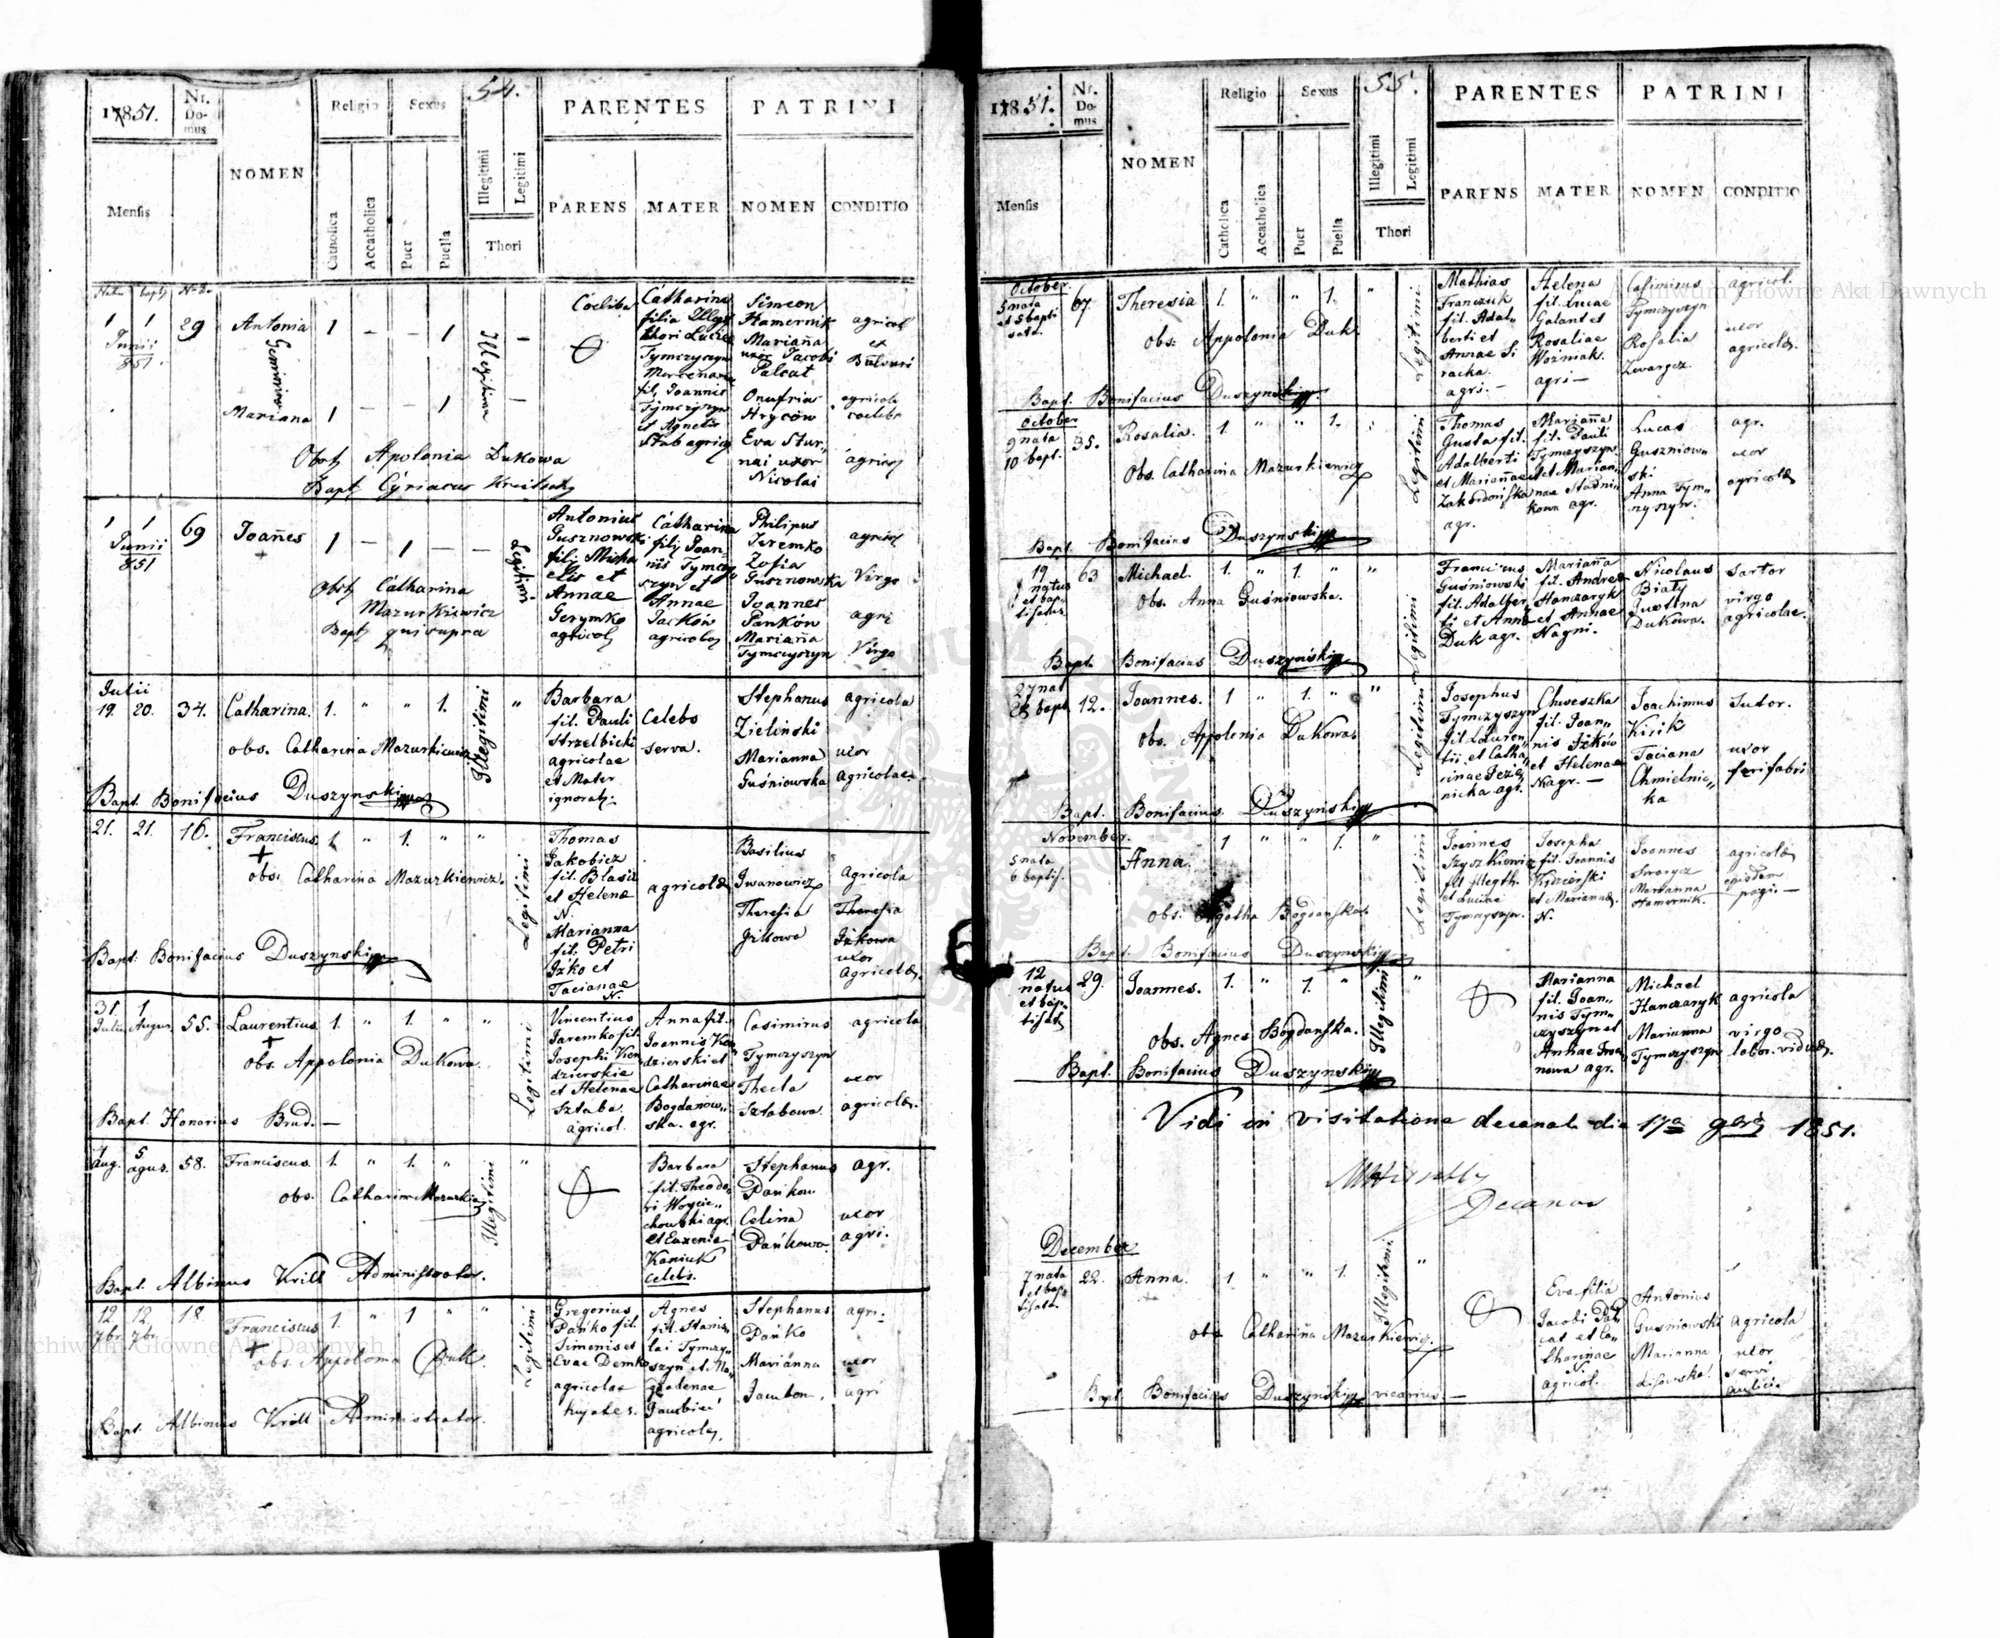 54.
1851.
Nr. Domus
NOMEN
Religio
Sexus
PARENTES
PATRINI
Mensis
Catholica
Accatholica
Puer
Puella
Illegitimi
Legitimi
Thori
PARENS
MATER
NOMEN
CONDITIO
1 1 Junii 851.
29
Antonia
Gemini
Mariana
1 — — 1
1 — — 1
Illegitima
Coelibs
Catharina
filia Illegi
thori Luciae
Tymczyszyn
fil. Joannis
Tymczyszyn
et Agnetis
Stab agric
Simeon
Hamernik
Marianna
uxor Jacobi
Palcat
Onufrius
Hryców
Eva Stur„
nai uxor
Nicolai
agricol
et
agricola
coelibs
agricol
Obst Apolonia Dukowa
Bapt Cyriacus
1 1 Junii 851
69
Joannes
1 — 1 — —
Legitimi
Antonius
Gusznowski
filij Micha
elis et
Annae
Jerymko
agricol
Catharina
filj Joan„
nis Tymczy
szyn et
Annae
Jacków
agricol
Philipus
Jeremko
Zofia
Gusznowska
Joannes
Panków
Marianna
Tymczyszyn
agricol
Virgo
agri
Virgo
Obst Catharina
Mazurkiewicz
Bapt qui supra
Julii
19. 20.
34.
Catharina.
1. „ „ 1. „
Illegitimi
Barbara
fil. Pauli
Strzelbicki
agricolae
et Mater
ignorat.
Celebs
serva.
Stephanus
Zielinski
Marianna
Guśniowska
agricola
uxor
agricolae.
obs. Catharina Mazurkiewicz
Bapt. Bonifacius Duszynski
21. 21.
16.
Franciscus.
1. „ 1. „ „
Legitimi
Thomas
Jakobicz
fil. Blasii
et Helenae
N.
Marianna
fil. Petri
Iżko et
Tacianae
N.
agricolae
Basilius
Iwanowicz
Theresia
Iżkowa
agricola
Theresia
Iżkowa
uxor
agricolae.
obs. Catharina Mazurkiewicz.
Bapt. Bonifacius Duszynski
31. 1
Julii Augus.
55.
Laurentius.
1. „ 1. „ „
Legitimi
Vincentius
Jaremko fil.
Josephi
et Helenae
Sztaba.
agricol.
Anna fil.
Joannis
dzierski et
Catharinae
Bogdanow„
ska. agr.
Casimirus
Tymczyszyn
Thecla
Sztabowa.
agricola
uxor
agricolae.
obs. Appolonia Dukowa.
Bapt. Honorius Brud. —
Aug. 5 agus.
58.
Franciscus.
1. „ 1. „ „
Illegitimi
Barbara
fil. Theodo„
ri Woycie„
chowski agr.
et Euxenia
Kaniuk
celebs.
Stephanus
Pańkow
Celina
Pańkowa.
agr.
uxor
agri.
obs. Catharina Mazurkiew
Bapt. Albinus Krill Administrator.
12. 12.
7br. 7br.
18.
Franciscus
1. „ 1 „ „
Legitimi
Gregorius
Pańko fil.
Simonis et
Evae Demko
agricolae
hujates.
Agnes
fil. Stanis„
lai Tymczy„
szyn et Ma„
gdalenae
agricol.
Stephanus
Pańko
Marianna
agri.
uxor
agri
obs. Appolonia Duk.
Bapt. Albinus Krill Administrator.
55.
1851.
Nr. Domus
NOMEN
Religio
Sexus
PARENTES
PATRINI
Mensis
Catholica
Accatholica
Puer
Puella
Illegitimi
Legitimi
Thori
PARENS
MATER
NOMEN
CONDITIO
October.
5 nata
et 5 bapti
sata.
67.
Theresia
1. „ „ 1. „
Legitimi
Mathias
Franczuk
fil. Adal„
berti et
Annae Si
racka.
agri. —
Helena
fil. Lucae
Galant et
Rosaliae
Woźniak.
agri —
Casimirus
Tymczyszyn
Rosalia
Zwargcz.
agricol.
uxor
agricolae.
obs. Appolonia Duk.
Bapt. Bonifacius Duszynski
October
9 nata
10 bapt.
35.
Rosalia.
1. „ „ 1. „
Legitimi
Thomas
Gusta fil.
Adalberti
et Mariannae
Zakordońska
agr.
Marianna
fil. Pauli
Tymczyszyn
et Marian„
nae Stadni„
kowa agr.
Lucas
Guszniow„
ski
Anna Tym„
szyszyn.
agr.
uxor
agricolae
Obs. Catharina Mazurkiewicz
Bapt. Bonifacius Duszynski
19
natus
et bap„
tisatus.
63
Michael.
1. „ 1. „ „
Legitimi
Franciscus
Guśniowski
fil. Adalber
ti et Annae
Duk agr.
Marianna
fil. Andreae
Hanczaryk
et Annae
Nagni.
Nicolaus
Biały
Justina
Dukowa.
Sartor
virgo
agricolae.
obs. Anna Guśniowska.
Bapt. Bonifacius Duszyński
27 nat
28 bapt
12.
Joannes.
1 „ 1. „ „
Legitimi
Josephus
Tymczyszyn
fil. Lauren„
tii et Catha„
rinae
nicka agr.
Chweszka
fil. Joan„
nis Iżków
et Helenae
N agr. —
Joachimus
Kisik
Taciana
Chmielnic„
ka
Sutor.
uxor
ferifabri
obs. Appolonia Dukowa.
Bapt. Bonifacius. Duszynski
November.
5 nata
6 baptis.
Anna.
1 „ „ 1. „
Legitimi
Joannes
Szyszkiewicz
fil. illegth.
et Luciae
Tymczyszyn.
Josepha
fil. Joannis
et Mariannae
N.
Joannes
Marianna
Hamernik.
agricolae
ejusdem
pagi. —
obs. Agatha Bogdańska.
Bapt. Bonifacius Duszynski
12
natus
et bap„
tisat
29.
Joannes.
1. „ 1. „
Illegitimi
Marianna
fil. Joan„
nis Tym„
czyszyn et
Annae Iwa
nowa agr.
Michael
Hanczaryk
Marianna
Tymczyszyn
agricola
virgo
labor. viduae.
obs. Agnes Bogdańska.
Bapt. Bonifacius Duszynski
Vidi in visitatione decanali die 17a 9bris 1851.
Decanus
December
7 nata
et bap„
tisata.
22.
Anna.
1 „ „ 1. „
Illegitimi.
Eva filia
Jacobi Pal
cat et Ca„
tharinae
N.
agricol.
Antonius
Gusniowski
Marianna
Lisowska.
agricola
uxor
servi
aulici.
obs. Catharina Mazurkiewicz.
Bapt. Bonifacius Duszyński vicarius. —
Archiwum Główne Akt Dawnych
Archiwum Główne Akt Dawnych